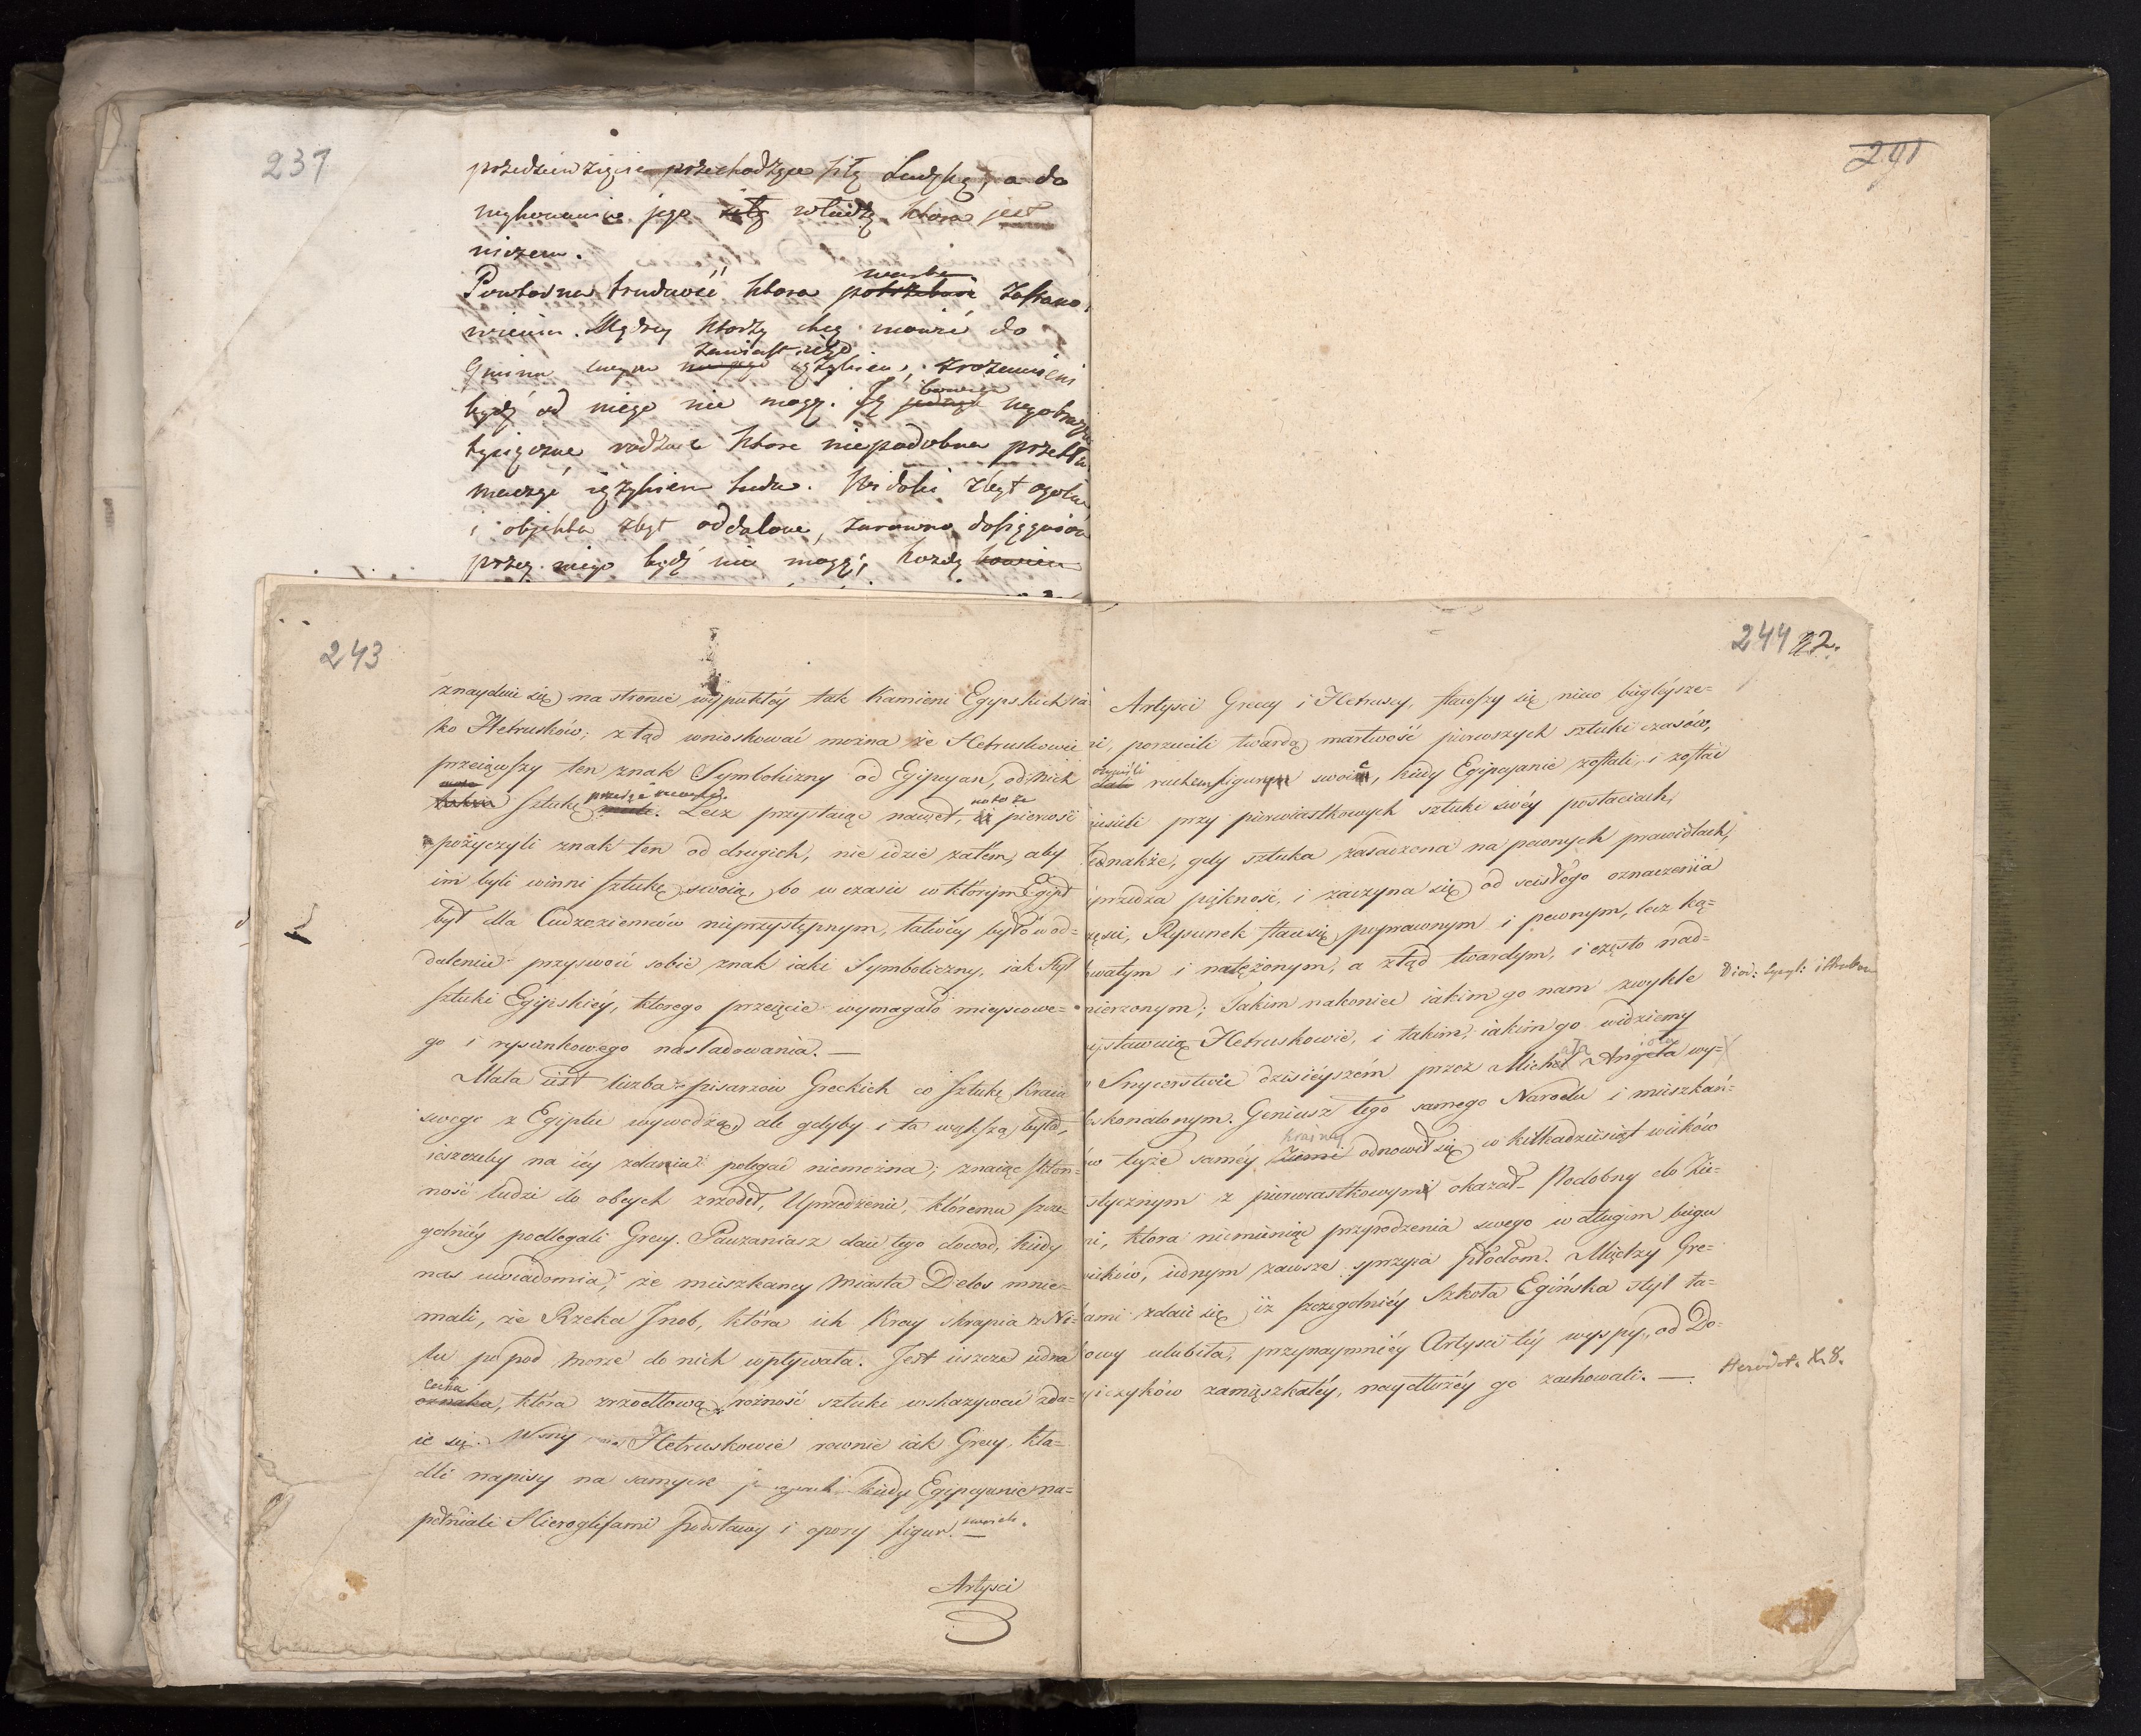 237
przedsięwzięcie przechodzące siłę Ludzką, a do
wykonania jego siłę władzę która jest
niczem.
Powtórna trudność która warta potrzebuie zastano-
wienia. Mędrcy którzy chcą mówić do
Gminu swym zamiast jego językiem, zrozumieni
bydź od niego nie mogą. Są bowiem wyobrażeń
tysiączne rodzaie które niepodobna przetłu-
maczyć językiem ludu. Widoki zbyt ogólne
i objekta zbyt oddalone, zarówno dosięgnione
przez niego bydź nie mogą; każdy bowiem
243
znayduie się na stronie wypukłéy tak Kamieni Egipskich ia-
ko Hetrusków; ztąd wnioskować można że Hetruskowie
przeiąwszy ten znak Symboliczny od Egipcyan, od nich
Sztukę przeięli. Lecz przystaiąc nawet, na to że pierwsi
pożyczyli znak ten od drugich, nie idzie zatém, aby
im byli winni sztukę swoię, bo w czasie w którym Egipt
był dla Cudzoziemców nieprzystępnym, łatwiéy było w od-
daleniu przyswoić sobie znak iaki Symboliczny, iak styl
sztuki Egipskiéy, którego przeięcie wymagało mieyscowe-
go i rysunkowego nasladowania. —
Mała iest liczba pisarzów Greckich co sztukę Kraiu
swego z Egiptu wywodzą, ale gdyby i ta większą była,
ieszczeby na iéy zdaniu polegać niemożna; znaiąc skłon-
ność ludzi do obcych zrzodeł, Uprzedzenie, któremu szcze-
gólniéy podlegali Grecy. Pauzaniasz daie tego dowod, kiedy
nas uwiadomia, że mieszkancy Miasta Delos mnie-
mali, że Rzeka Inob, która ich Kray skrapia z Ni-
lu po pod morze do nich wpływała. Jest ieszcze iedna
cecha
oznaka, która zrzodłową rożność sztuki wskazywać zda-
ie się. Hetruskowie rownie iak Grecy, kła-
dli napisy na samych figurach kiedy Egipcyanie na-
pełniali Hieroglifami podstawy i opory figur swoich. —
Artysci
244 22.
Artysci Grecy i Hetruscy, stawszy się nieco biegléysze-
mi, porzucili twardą martwość pierwszych sztuki czasów,
ożywili
dali ruchem figury swoie, kiedy Egipcyanie zostali, i zostać
musieli przy pierwiastkowych sztuki swéy postaciach,
Jednakże, gdy sztuka zasadzona na pewnych prawidłach,
uprzedza piękność, i zaczyna się od scisłego oznaczenia
części, Rysunek staie się poprawnym i pewnym, lecz ką-
towatym i natężonym, a ztąd twardym, i często nad-
mierzonym; Takim nakoniec iakim go nam zwykle
Diod: Sycyl: i Strabon
wystawuią Hetruskowie, i takim, iakim go widziemy
w Snycerstwie dzisieyszém przez Michała Angela wy-
doskonalonym. Geniusz tego samego Narodu i mieszkań-
krainy
ców teyże saméy ziemi odnowił się w kilkadziesiąt wieków
stycznym z pierwiastkowym okazał. Podobny do Zie-
mi, która niemieniąc przyrodzenia swego w długim biegu
wieków, iednym zawsze sprzyia płodom. Między Gre-
kami zdaie się iż szczególniéy Szkoła Egińska styl ta-
kowy ulubiła, przynaymniéy Artysci téy wyspy, od Do-
ryiczyków zamieszkałéy, naydłużéy go zachowali. —
Herodot. L. 8.